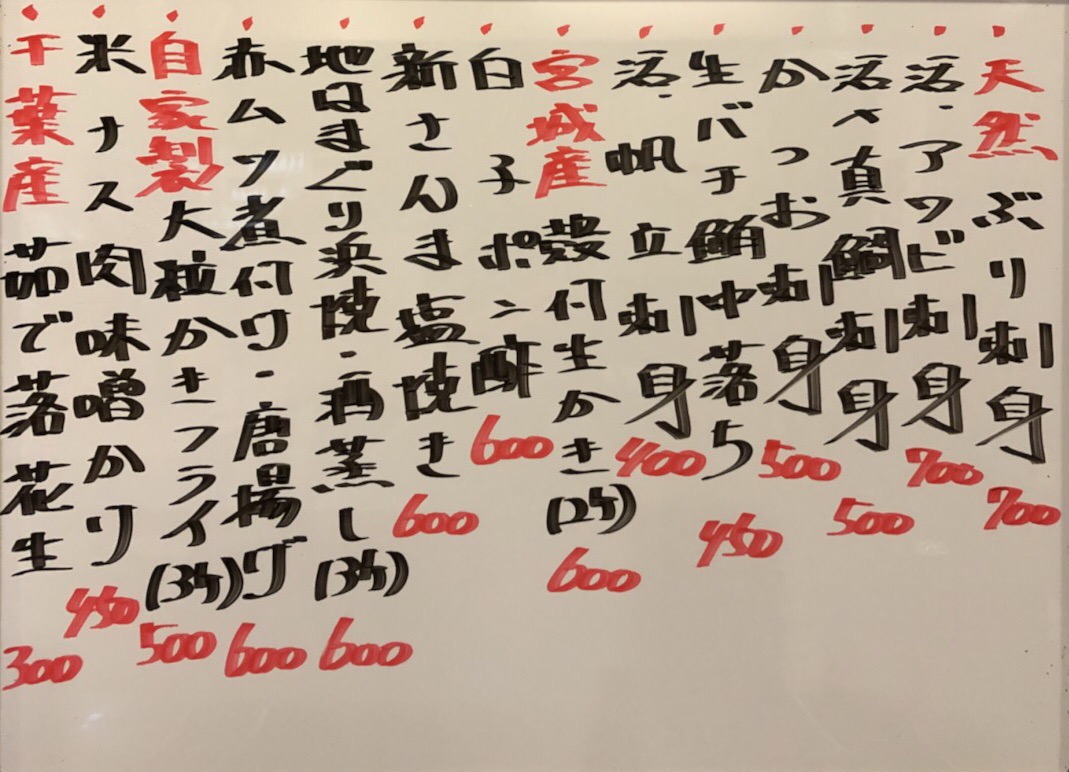 天然ぶり刺身 700
活・アワビ刺身 700
活〆真鯛刺身 500
かつお刺身 500
生バチ鮪中落ち 450
活・帆立刺身 400
宮城産殻付生かき(2ケ) 600
白子ポン酢 600
新さんま塩焼き 600
地はまぐり浜焼・酒蒸し(3ケ) 600
赤ムツ煮付け・唐揚げ 600
自家製大粒かきフライ(3ケ) 500
米ナス肉味噌かけ 450
千葉産茹で落花生 300